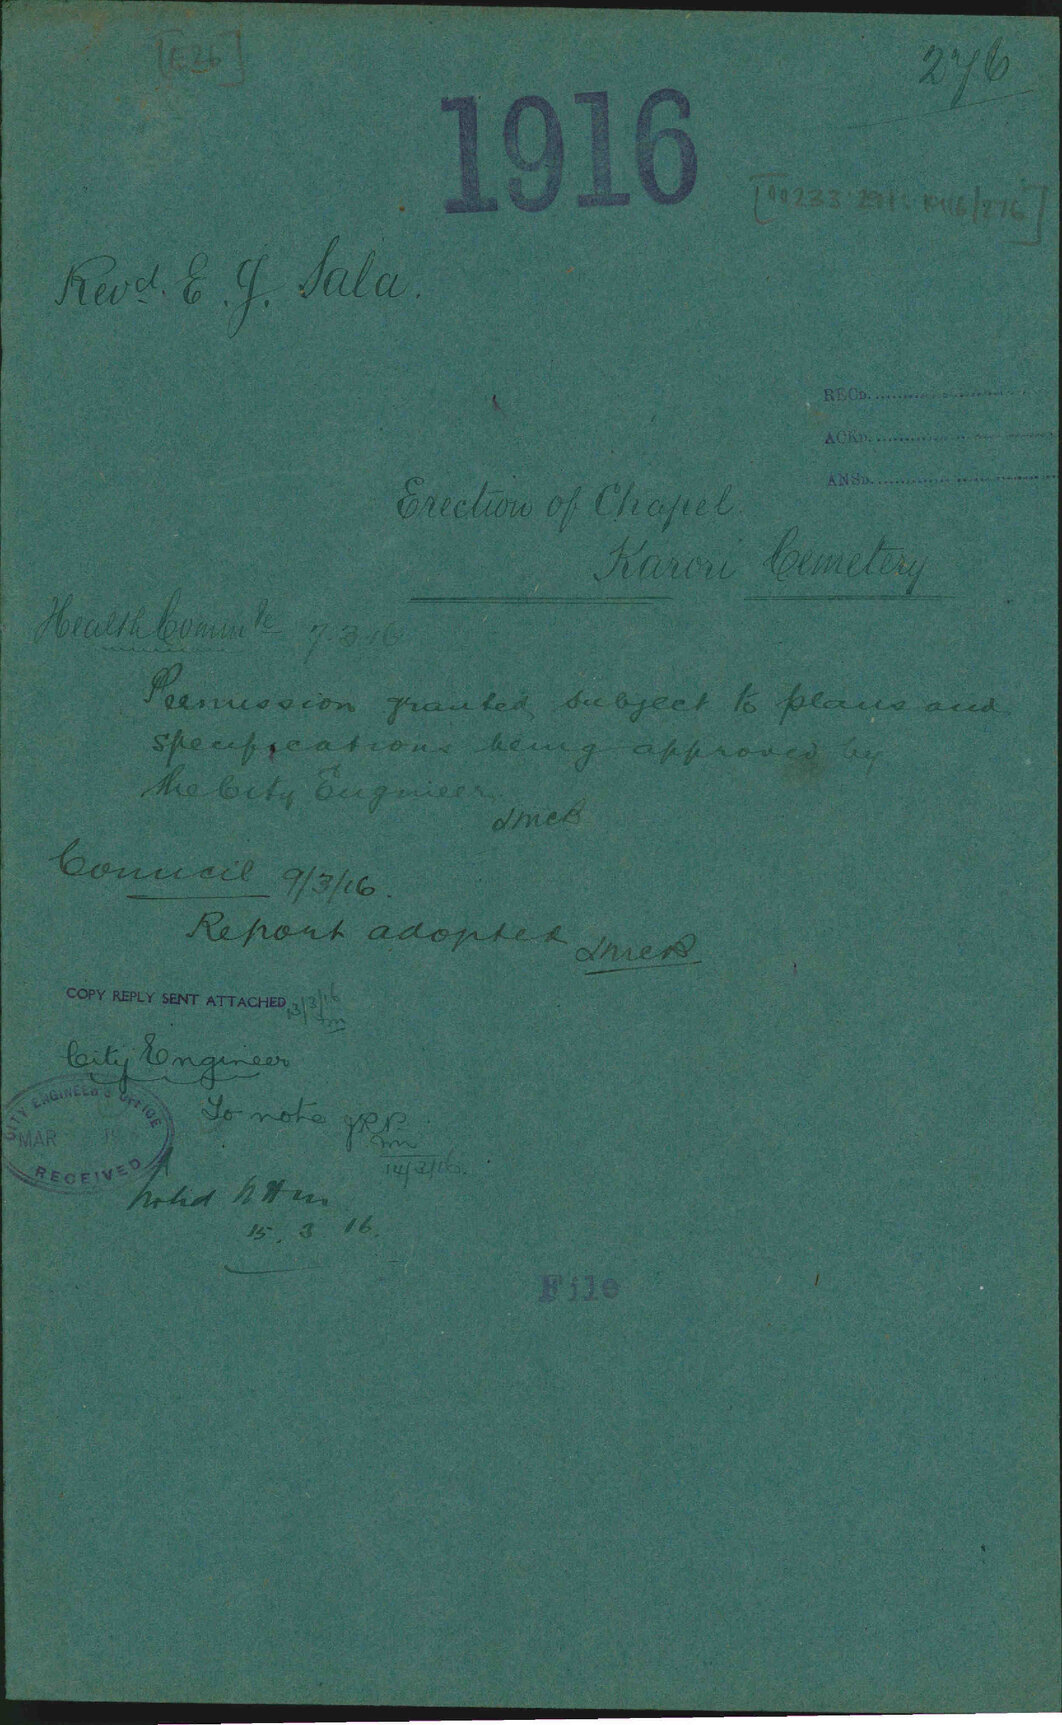 [E26]
276
1916
[00233:271:1916/276]
Revd. E. J. Sala.
RECD.
ACKD.
ANSD.
Erection of Chapel
Karori Cemetery
Health Commte 7.3.16
Permission granted subject to plans and
specifications being approved by
the City Engineer.
Council 9/3/16.
Report adopted
COPY REPLY SENT ATTACHED 13/3/16
City Engineer
CITY ENGINEER'S OFFICE
To note JRP
MAR
14/3/16.
RECEIVED
Noted
15. 3 16.
File